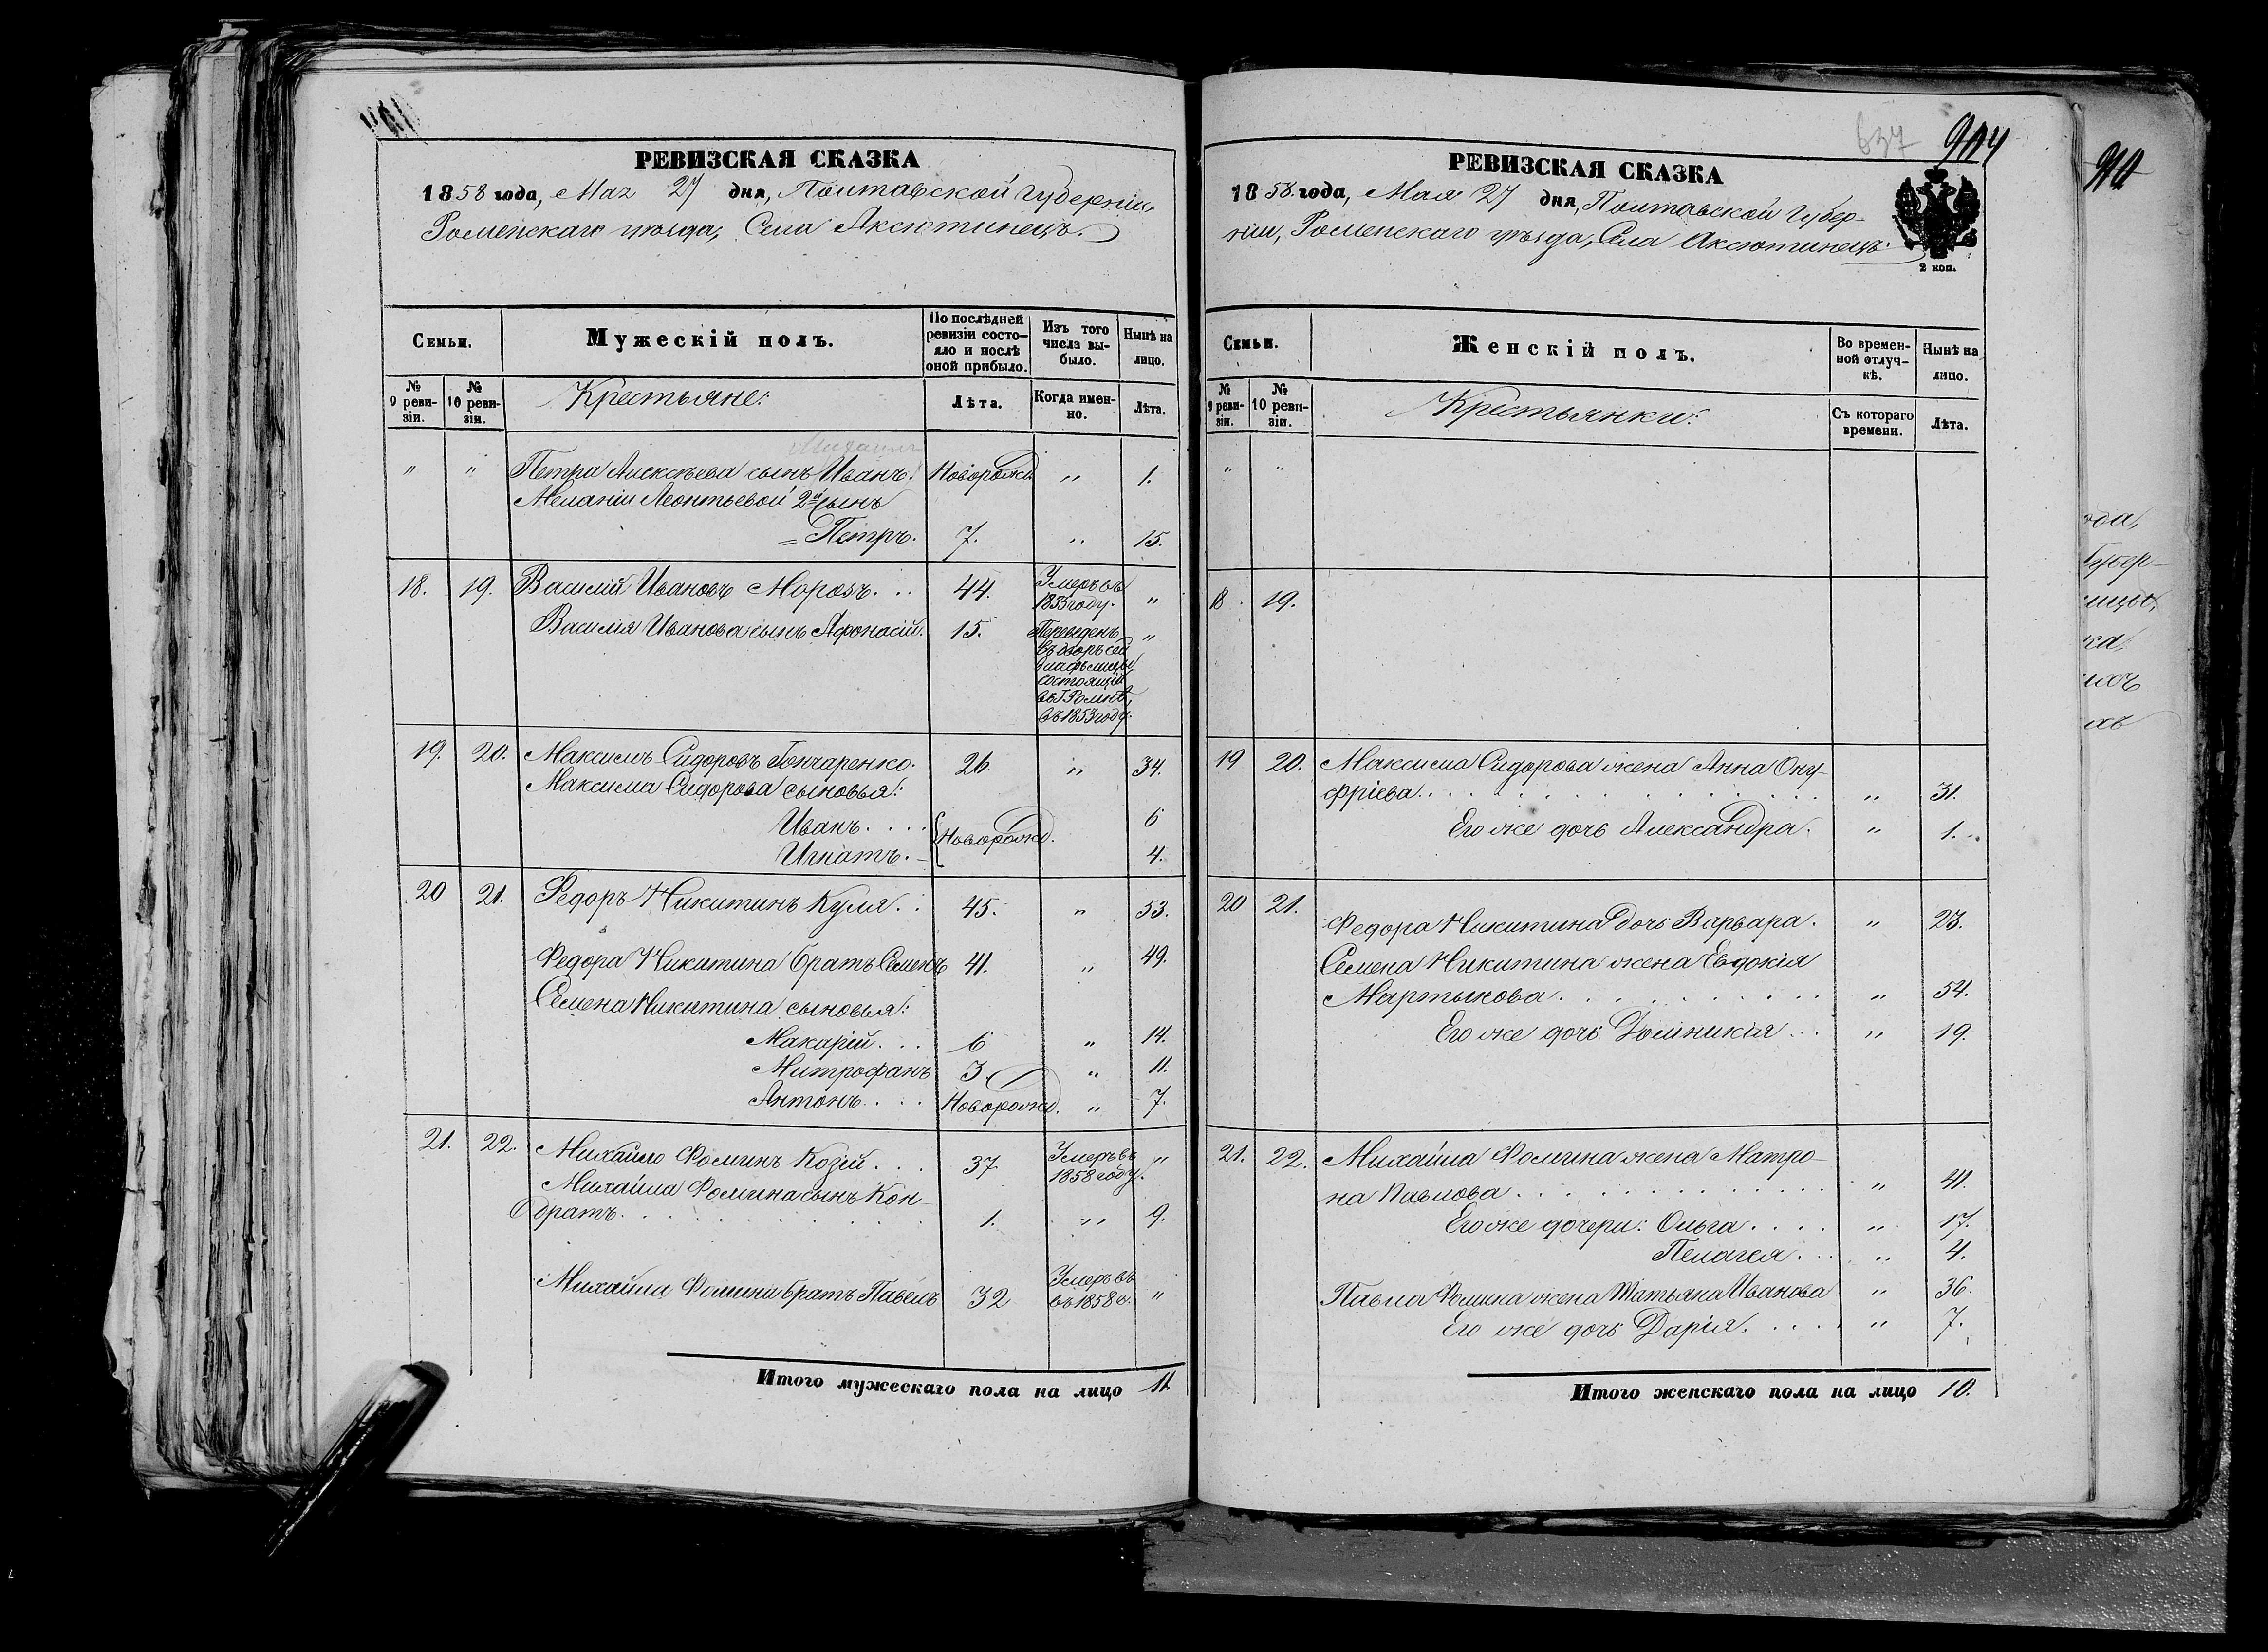 РЕВИЗСКАЯ СКАЗКА
1858 года, Мая 27 дня, Полтавской Губерніи,
Роменскаго уѣзда, Села Аксютинецъ.
Семьи.
Мужескій полъ.
По послѣдней ревизіи состояло и послѣ оной прибыло.
Изъ того числа выбыло.
Нынѣ на лицо.
№ 9 ревизіи.
№ 10 ревизіи.
Крестьяне:
Лѣта.
Когда именно.
Лѣта.
" " Петра Алексѣева сынъ Иванъ. Новорожд. " 1.
Меланіи Леонтьевой 2й сынъ
Петръ. 7. " 15.
18. 19. Василій Ивановъ Морозъ. . . 44. Умеръ въ 1853 году. "
Василія Иванова сынъ Афонасій. 15. Переведенъ "
въ дворъ сей
владѣлицы
состоящій
въ Г. Ромнѣ,
въ 1853 году.
19. 20. Максимъ Сидоровъ Гончаренко. 26. " 34.
Максима Сидорова сыновья:
Иванъ. . . . Новорожд. 6
Игнатъ. 4.
20 21. Федоръ Никитинъ Куля. . 45. " 53.
Федора Никитина братъ Семенъ 41. " 49.
Семена Никитина сыновья:
Макарій. . . 6 " 14.
Митрофанъ 3 " 11.
Антонъ. . . . Новорожд. " 7.
21. 22. Михайло Фоминъ Козій. . . 37 Умеръ въ 1858 году. "
Михайла Фомина сынъ Кон-
дратъ. . . . . . . . . 1. " 9.
Михайла Фомина братъ Павелъ 32 Умеръ въ въ 1858 г. "
Итого мужескаго пола на лицо 11
637 904
РЕВИЗСКАЯ СКАЗКА
1858 года, Мая 27 дня, Полтавской Губер-
ніи, Роменскаго уѣзда, Села Аксютинецъ.
2 коп.
Семьи.
Женскій полъ.
Во временной отлучкѣ.
Нынѣ на лицо.
№ 9 ревизіи.
№ 10 ревизіи.
Крестьянки:
Съ котораго времени.
Лѣта.
" "
18. 19.
19 20. Максима Сидорова жена Анна Ону-
фріева. . . . . . . . . " 31.
Его же дочь Александра. " 1.
20 21. Федора Никитина дочь Варвара. " 23.
Семена Никитина жена Евдокія
Мартынова. . . . . . . " 54.
Его же дочь Домникія . . " 19.
21. 22. Михайла Фомина жена Матро-
на Павлова. . . . . . . " 41.
Его же дочери: Ольга. . . . " 17.
Пелагея. . . " 4.
Павла Фомина жена Татьяна Иванова " 36.
Его же дочь Дарія. . . . . " 7.
Итого женскаго пола на лицо 10.
ода,
Губер-